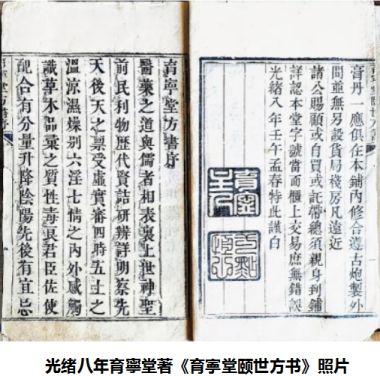 育寧堂頤世方書
膏丹一應俱在本鋪內修合遵古炮製外
間並無另設貨局棧房凡遠近
諸公賜顧或自買或託帶總須親身到鋪
詳認本堂字號當面櫃上交易庶無錯誤
光緒八年壬午孟春特此謹白
育寧堂方書序
醫藥之道與儒者相表裏上世神聖
前民利物歷代賢喆研辨詳明察先
天後天之稟受虛實審四時五土之
溫涼濕燥別六淫七情之內外感觸
識草木品彙之質性毒良君臣佐使
配合有分量升降陰陽先後有宜忌
光绪八年育寧堂著《育寧堂颐世方书》照片